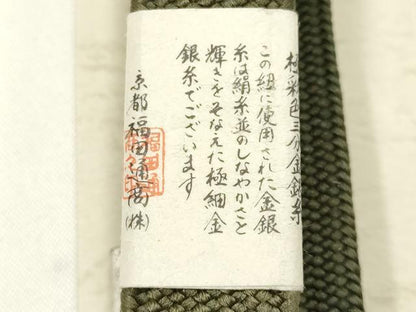 極彩色三分金銀糸
この紐に使用された金銀
糸は絹糸並のしなやかさと
輝きをそなえた極細金
銀糸でございます
京都 福田通商(株)